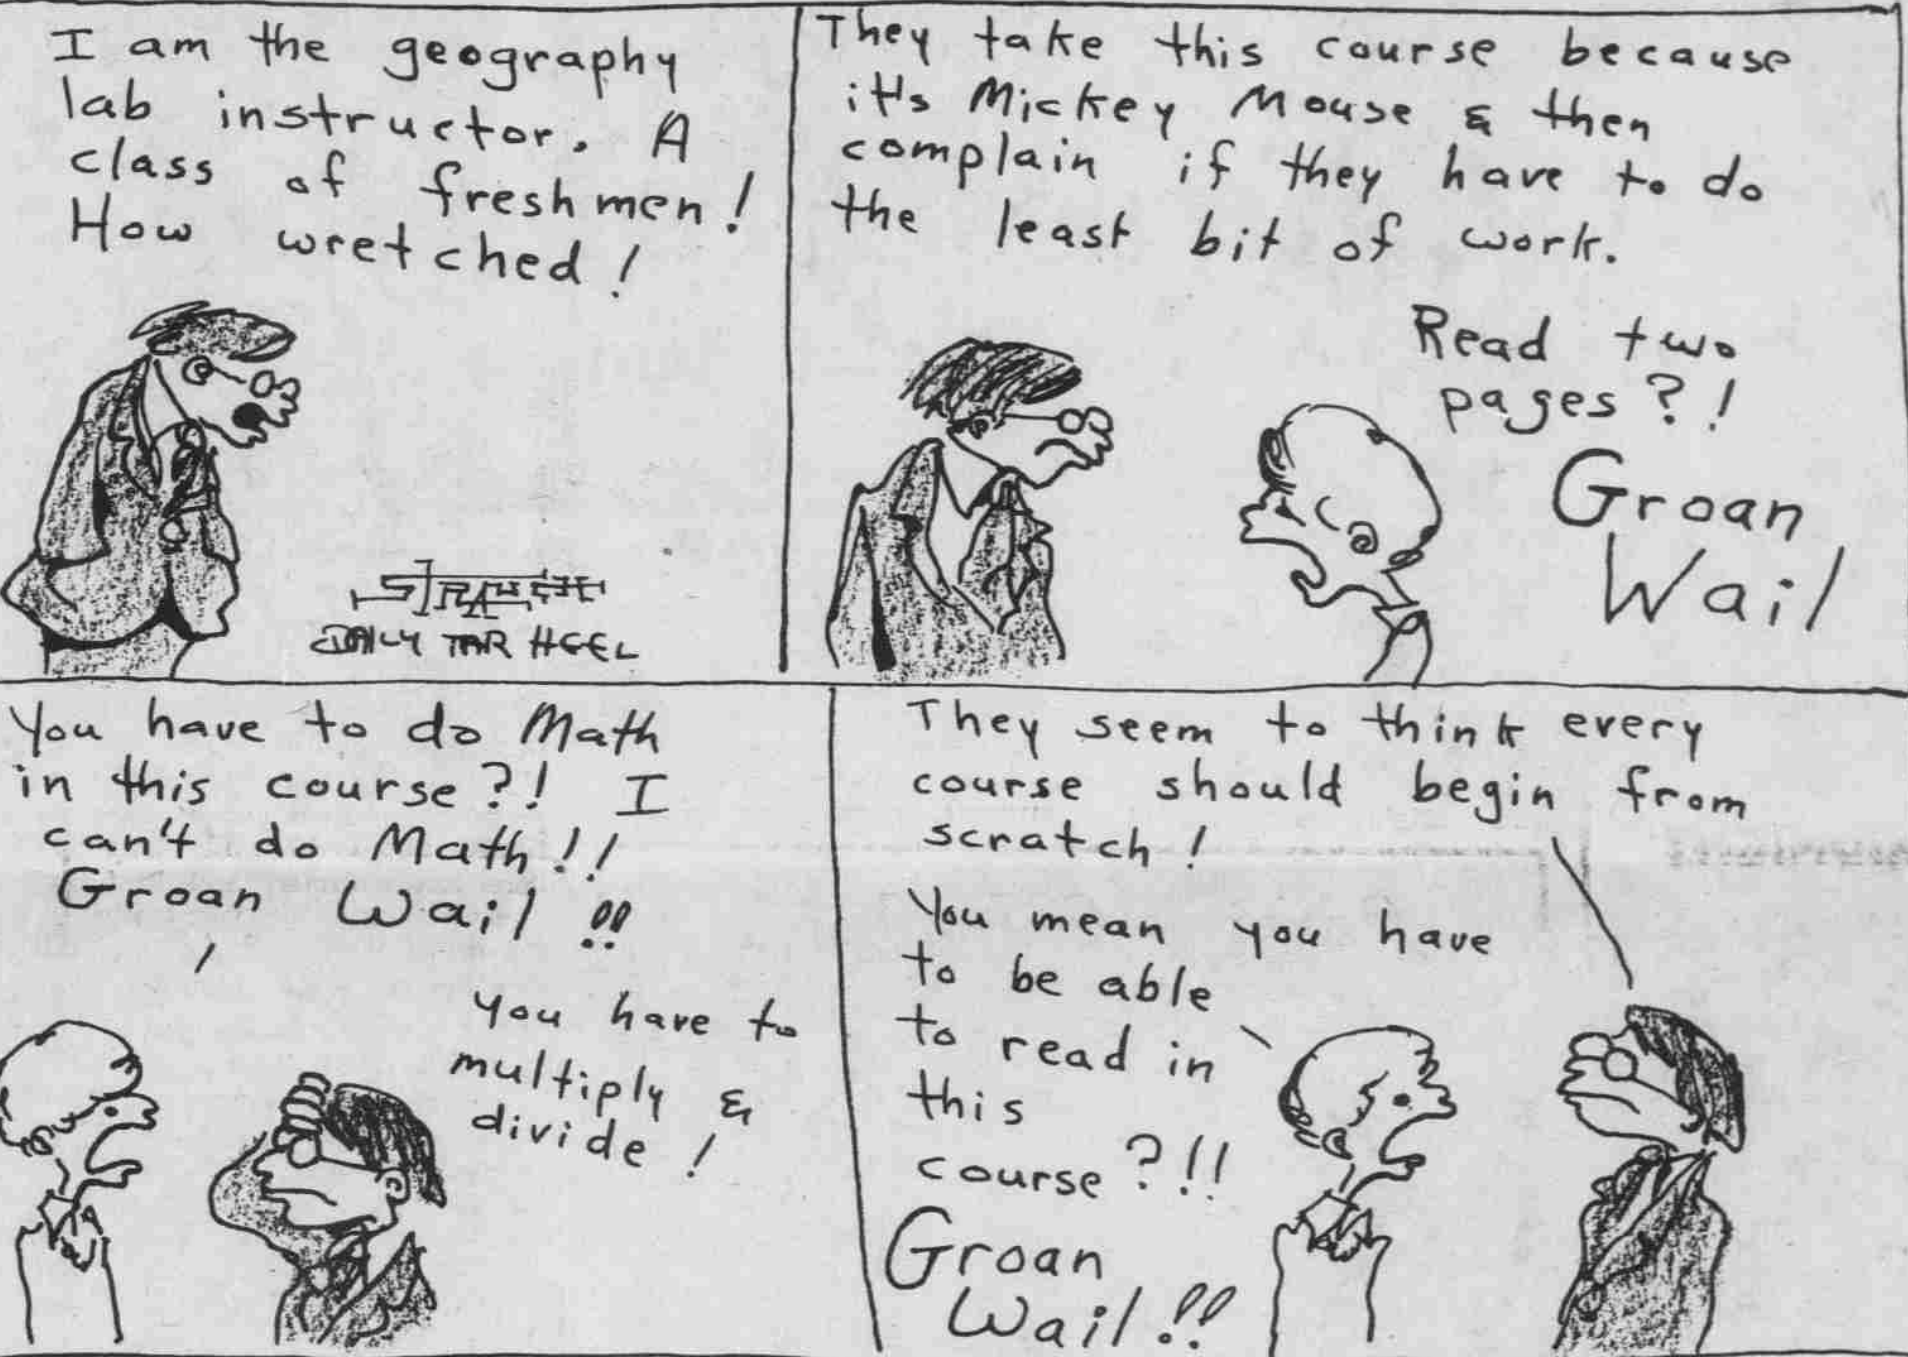 I am the geography
lab instructor. A
class of freshmen!
How wretched!
DAILY TAR HEEL
They take this course because
it's Mickey Mouse & then
complain if they have to do
the least bit of work.
Read two
pages?!
Groan
Wail
You have to do Math
in this course?! I
can't do Math!!
Groan Wail!!
You have to
multiply &
divide!
They seem to think every
course should begin from
scratch!
You mean you have
to be able
to read in
this
course?!!
Groan
Wail!!